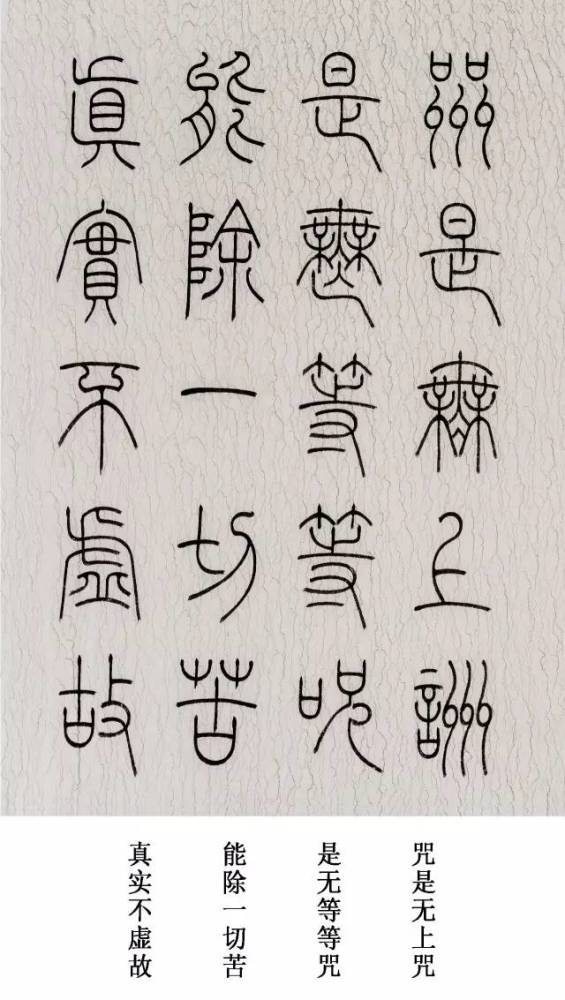 咒是無上咒
是無等等咒
能除一切苦
真實不虛故
咒是无上咒
是无等等咒
能除一切苦
真实不虚故